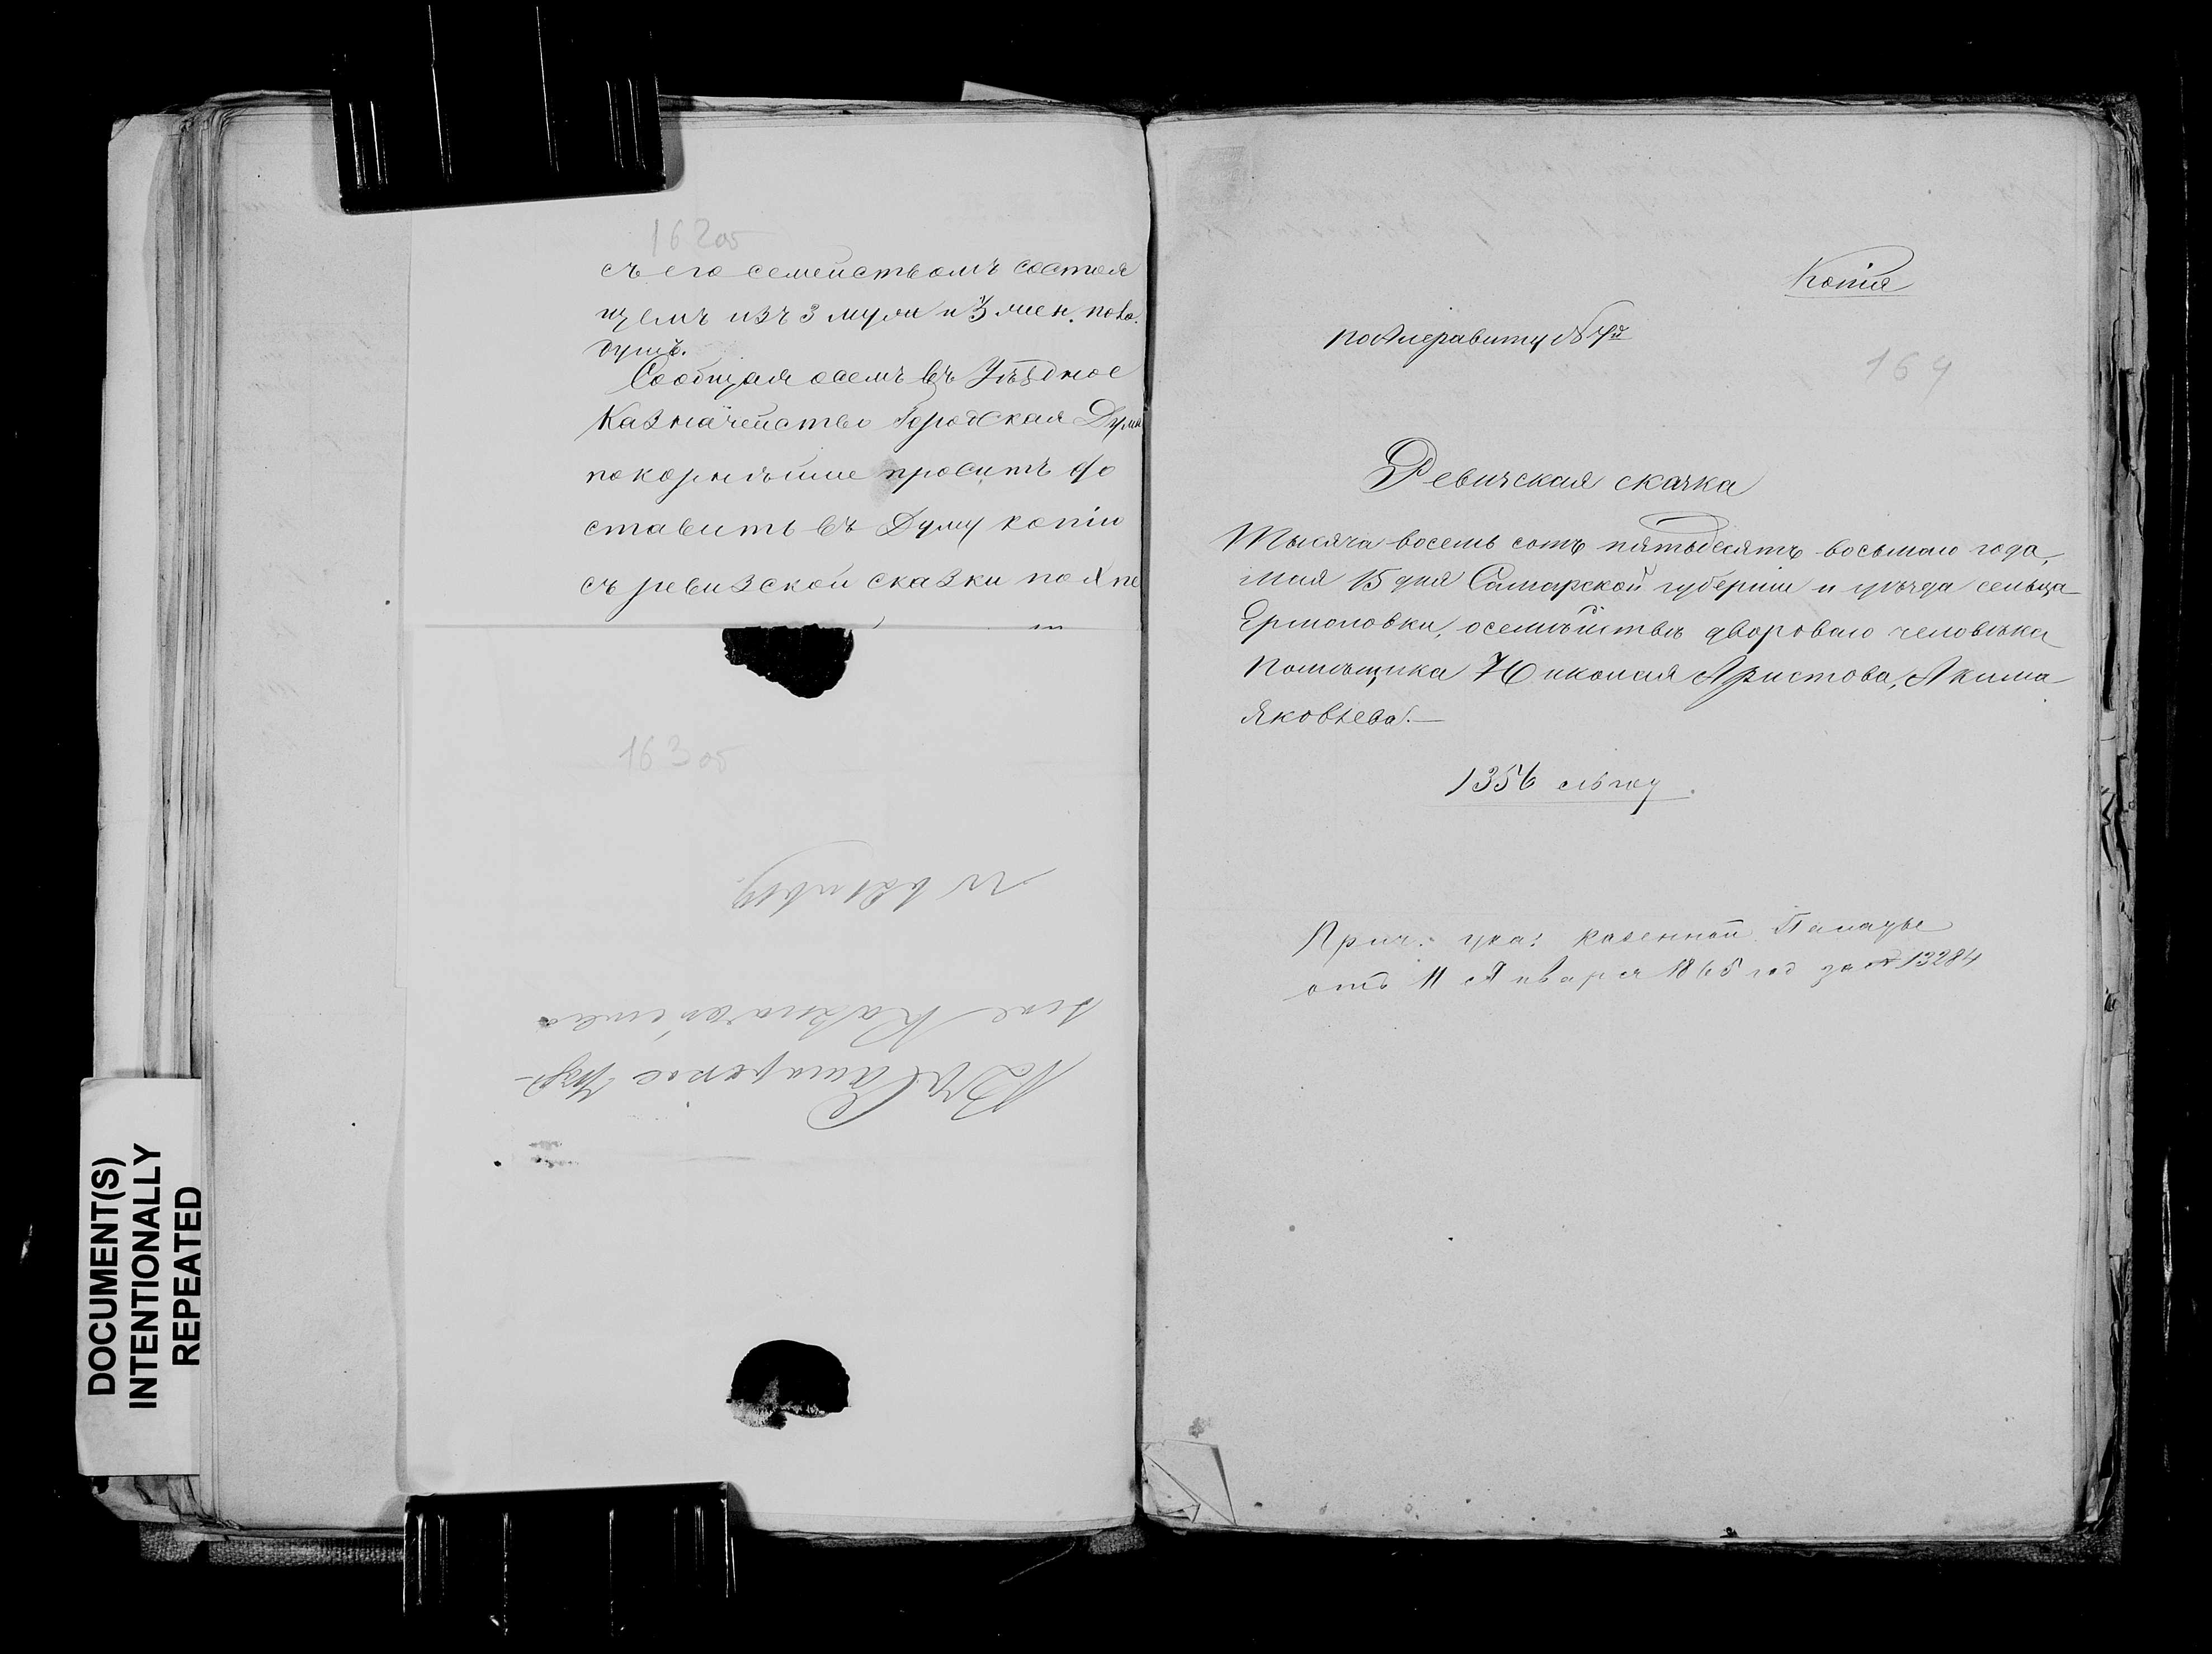 162 об
съ его семействомъ состоя
щемъ изъ 3 муж и 3 жен. пола
душъ.
Сообщая осемъ въ Уѣздное
Казначейство Городская Дума
покорнѣйше проситъ до
ставить въ Думу копію
съ ревизской сказки по X пе
163 об
Въ Самарское Уѣзд-
ное Казначейство
Копія
по Алфавиту № 4й
164
Ревизская сказка
Тысяча восемь сотъ пятьдесятъ восьмаго года,
мая 15 дня Самарской губерніи и уѣзда сельца
Ермоловки, осемѣйствѣ двороваго человѣка
помѣщика Николая Аристова, Акима
Яковлева.—
1356
Прич. ука: казенной Палаты
отъ 11 Января 1865 год за № 13284
DOCUMENT(S)
INTENTIONALLY
REPEATED